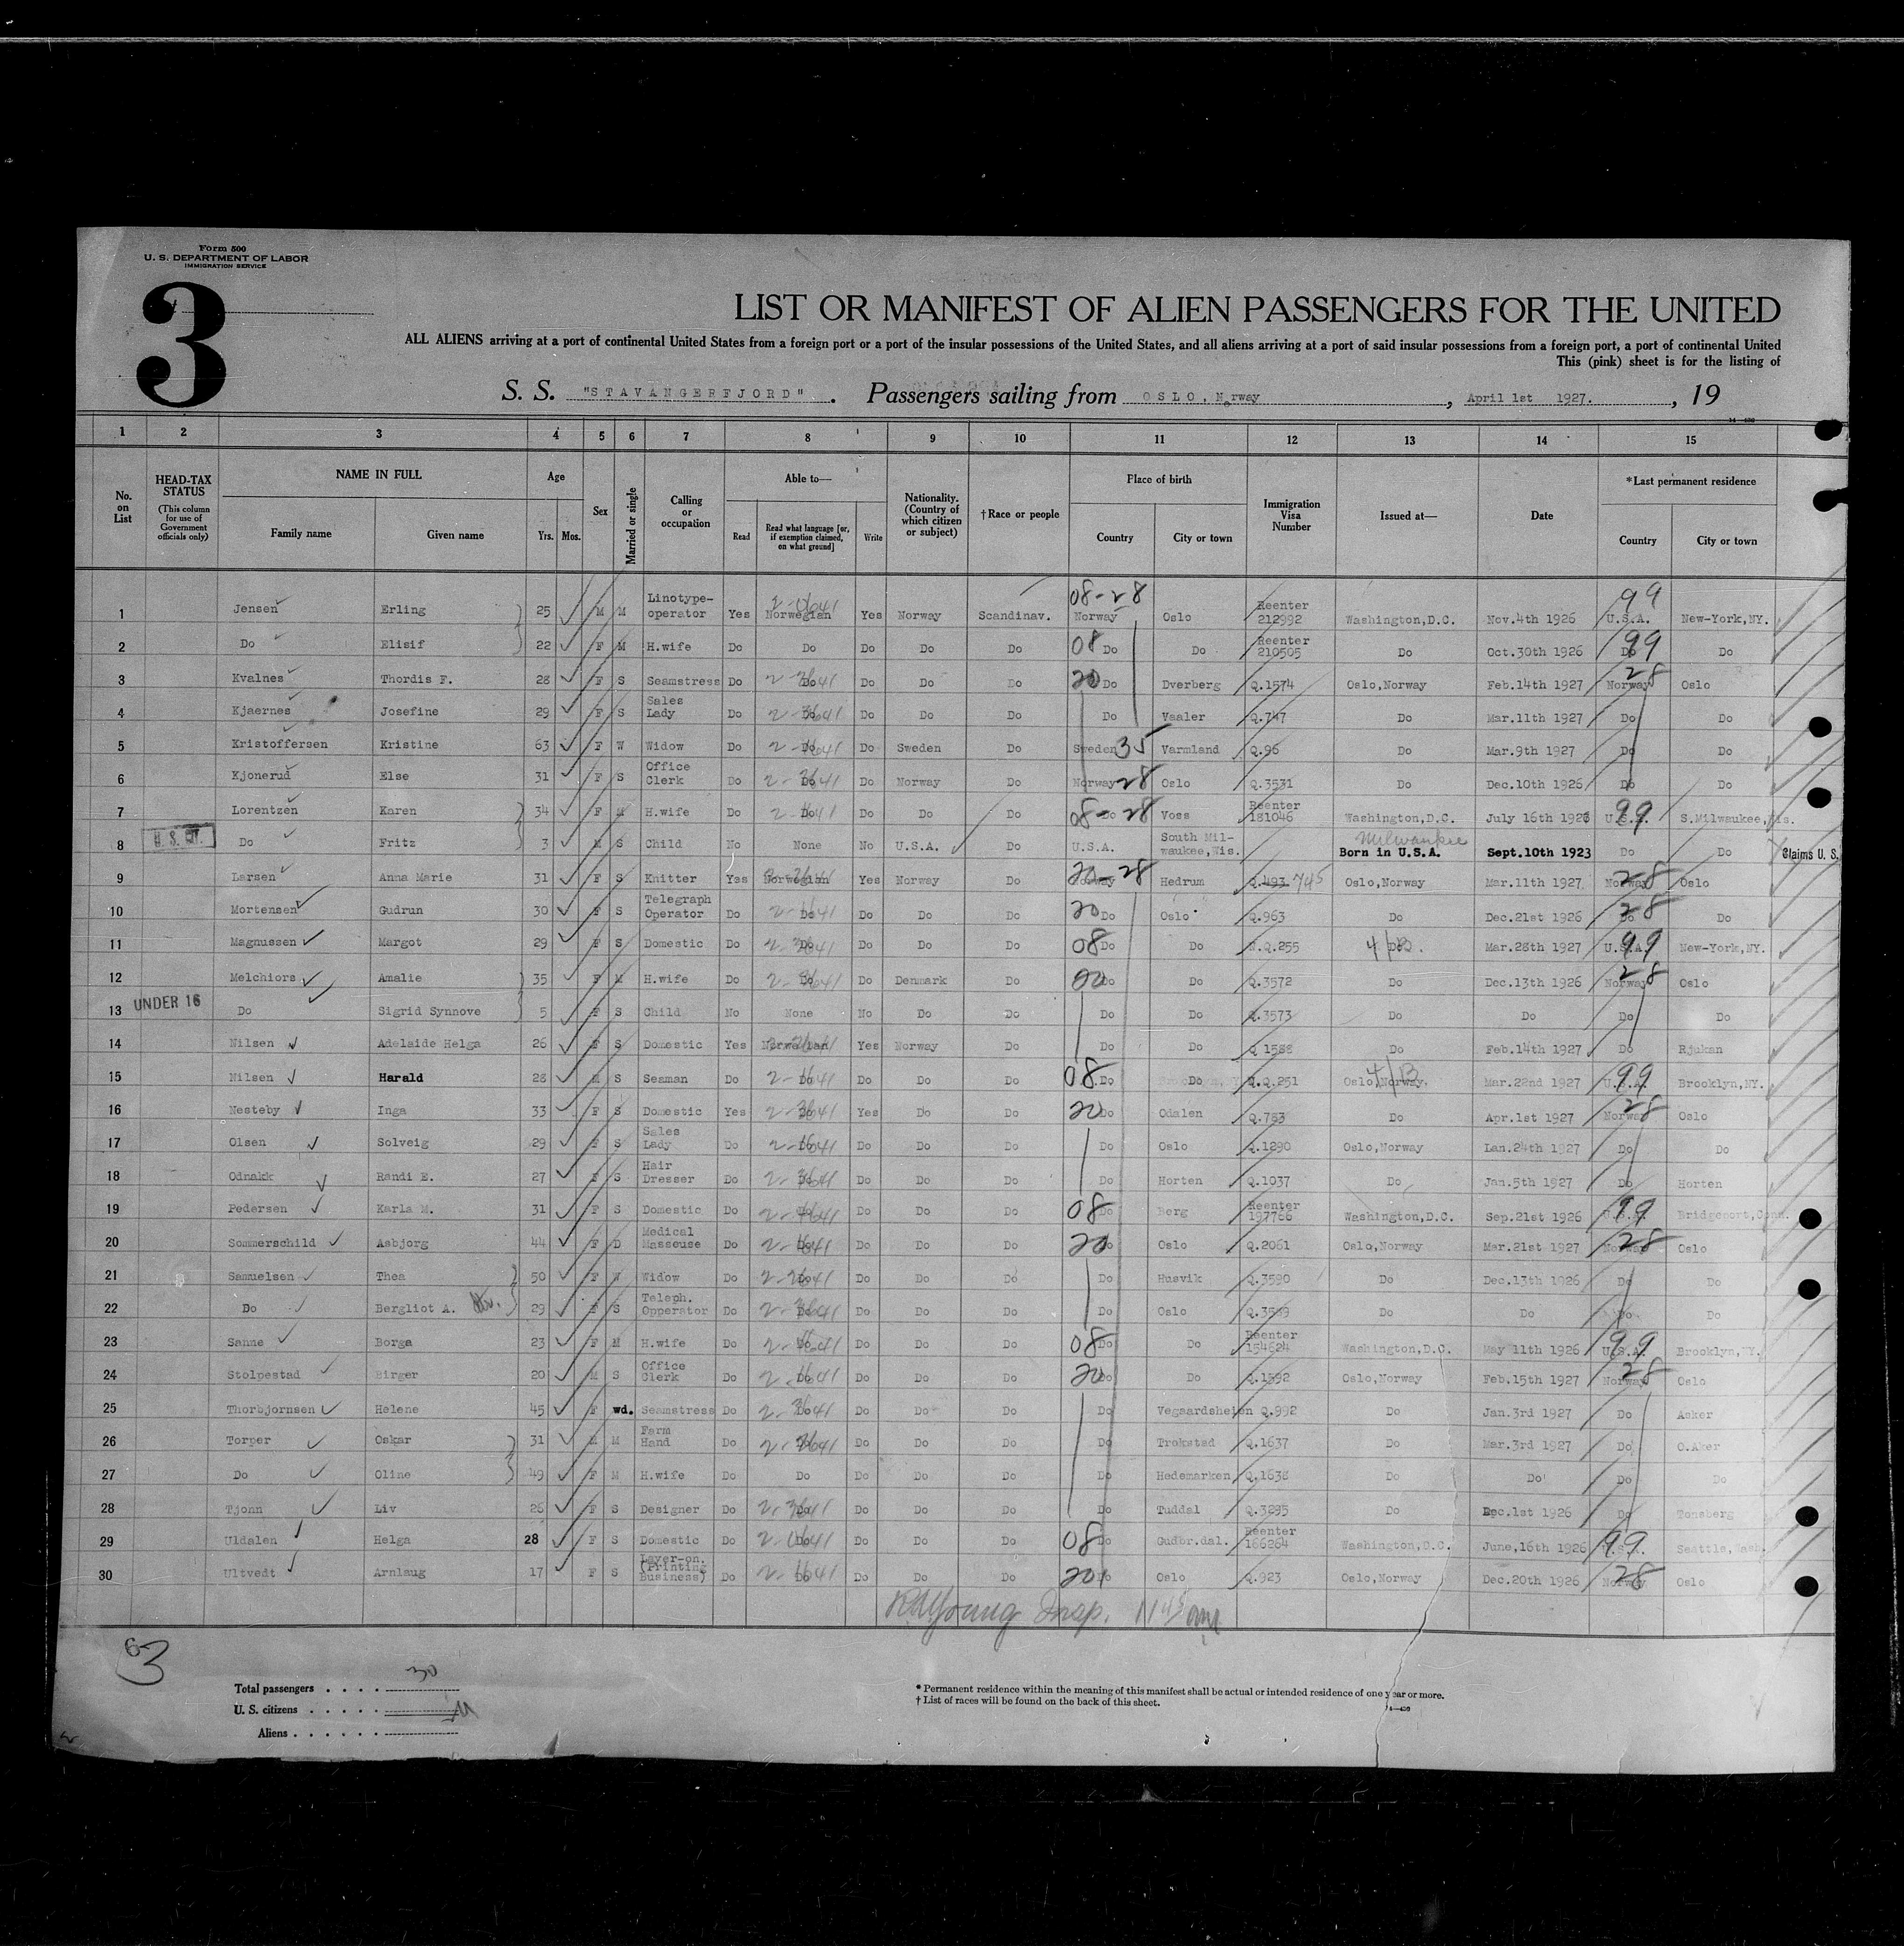 Form 500
U. S. DEPARTMENT OF LABOR
IMMIGRATION SERVICE
3
LIST OR MANIFEST OF ALIEN PASSENGERS FOR THE UNITED
ALL ALIENS arriving at a port of continental United States from a foreign port or a port of the insular possessions of the United States, and all aliens arriving at a port of said insular possessions from a foreign port, a port of continental United
This (pink) sheet is for the listing of
S. S. "STAVANGERFJORD". Passengers sailing from OSLO, Norway, April 1st 1927., 19
1 2 3 4 5 6 7 8 9 10 11 12 13 14 15
No. on List HEAD-TAX STATUS (This column for use of Government officials only) NAME IN FULL Family name Given name Age Yrs. Mos. Sex Married or single Calling or occupation Able to— Read Read what language [or, if exemption claimed, on what ground] Write Nationality. (Country of which citizen or subject) †Race or people Place of birth Country City or town Immigration Visa Number Issued at— Date *Last permanent residence Country City or town
1 Jensen Erling 25 M M Linotype-operator Yes Norwegian Yes Norway Scandinav. 08-28 Norway Oslo Reenter 212992 Washington,D.C. Nov.4th 1926 99 U.S.A. New-York,NY.
2 Do Elisif 22 F M H.wife Do Do Do Do Do 08 Do Do Reenter 210505 Do Oct.30th 1926 99 Do Do
3 Kvalnes Thordis F. 28 F S Seamstress Do Do Do Do Do 20 Do Dverberg Q.1574 Oslo,Norway Feb.14th 1927 28 Norway Oslo
4 Kjaernes Josefine 29 F S Sales Lady Do Do Do Do Do Do Vaaler Q.747 Do Mar.11th 1927 Do Do
5 Kristoffersen Kristine 63 F W Widow Do Do Do Sweden Do Sweden 35 Varmland Q.96 Do Mar.9th 1927 Do Do
6 Kjonerud Else 31 F S Office Clerk Do Do Do Norway Do Norway 28 Oslo Q.3531 Do Dec.10th 1926 Do Do
7 Lorentzen Karen 34 F M H.wife Do Do Do Do Do 08-28 Do Voss Reenter 181046 Washington,D.C. July 16th 1926 99 U.S.A. S.Milwaukee,Wis.
8 U. S. CIT. Do Fritz 3 M S Child No None No U.S.A. Do U.S.A. South Milwaukee,Wis. Milwaukee Born in U.S.A. Sept.10th 1923 Do Do Claims U. S.
9 Larsen Anna Marie 31 F S Knitter Yes Norwegian Yes Norway Do 20-28 Norway Hedrum Q.493 745 Oslo,Norway Mar.11th 1927 28 Norway Oslo
10 Mortensen Gudrun 30 F S Telegraph Operator Do Do Do Do Do 20 Do Oslo Q.963 Do Dec.21st 1926 28 Do Do
11 Magnussen Margot 29 F S Domestic Do Do Do Do Do 08 Do Do N.Q.255 Do Mar.28th 1927 99 U.S.A. New-York,NY.
12 Melchiors Amalie 35 F M H.wife Do Do Do Denmark Do Do Do Q.3572 Do Dec.13th 1926 28 Norway Oslo
13 UNDER 16 Do Sigrid Synnove 5 F S Child No None No Do Do Do Do Q.3573 Do Do Do Do
14 Nilsen Adelaide Helga 26 F S Domestic Yes Norwegian Yes Norway Do Do Do Q 1588 Do Feb.14th 1927 Do Rjukan
15 Nilsen Harald 28 M S Seaman Do Do Do Do Do 08 Do Do Q.251 Oslo,Norway. Mar.22nd 1927 99 U.S.A. Brooklyn,NY.
16 Nesteby Inga 33 F S Domestic Yes Do Yes Do Do 20 Do Odalen Q.783 Do Apr.1st 1927 28 Norway Oslo
17 Olsen Solveig 29 F S Sales Lady Do Do Do Do Do Do Oslo Q.1290 Oslo,Norway Lan.24th 1927 Do Do
18 Odnakk Randi E. 27 F S Hair Dresser Do Do Do Do Do Do Horten Q.1037 Do Jan.5th 1927 Do Horten
19 Pedersen Karla M. 31 F S Domestic Do Do Do Do Do 08 Do Berg Reenter 197766 Washington,D.C. Sep.21st 1926 99 U.S.A. Bridgeport,Conn.
20 Sommerschild Asbjorg 44 F D Medical Masseuse Do Do Do Do Do 20 Do Oslo Q.2061 Oslo,Norway Mar.21st 1927 28 Norway Oslo
21 Samuelsen Thea 50 F W Widow Do Do Do Do Do Do Husvik Q.3590 Do Dec.13th 1926 Do Do
22 Do Bergliot A. 29 F S Teleph. Opperator Do Do Do Do Do Do Oslo Q.3589 Do Do Do Do
23 Sanne Borga 23 F M H.wife Do Do Do Do Do 08 Do Do Reenter 154624 Washington,D.C. May 11th 1926 99 U.S.A. Brooklyn,NY.
24 Stolpestad Birger 20 M S Office Clerk Do Do Do Do Do 20 Do Do Q.1592 Oslo,Norway Feb.15th 1927 28 Norway Oslo
25 Thorbjornsen Helene 45 F wd. Seamstress Do Do Do Do Do Do Vegaardsheien Q.992 Do Jan.3rd 1927 Do Asker
26 Torper Oskar 31 M M Farm Hand Do Do Do Do Do Do Trokstad Q.1637 Do Mar.3rd 1927 Do O.Aker
27 Do Oline 49 F M H.wife Do Do Do Do Do Do Hedemarken Q.1638 Do Do Do Do
28 Tjonn Liv 26 F S Designer Do Do Do Do Do Do Tuddal Q.3295 Do Dec.1st 1926 Do Tonsberg
29 Uldalen Helga 28 F S Domestic Do Do Do Do Do 08 Do Gudbr.dal. Reenter 166264 Washington,D.C. June,16th 1926 99 U.S.A. Seattle,Wash.
30 Ultvedt Arnlaug 17 F S Layer-on. (Printing Business) Do Do Do Do Do 20 Do Oslo Q.923 Oslo,Norway Dec.20th 1926 28 Norway Oslo
Young Insp.
3
Total passengers . . . . 30
U. S. citizens . . . . .
Aliens . . . . . .
* Permanent residence within the meaning of this manifest shall be actual or intended residence of one year or more.
† List of races will be found on the back of this sheet.